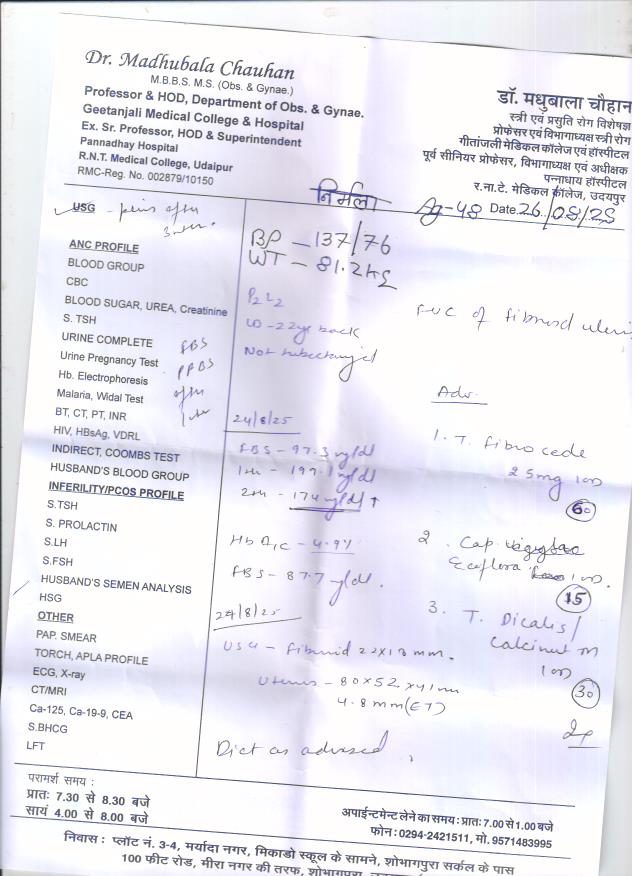 Dr. Madhubala Chauhan
M.B.B.S. M.S. (Obs. & Gynae.)
Professor & HOD, Department of Obs. & Gynae.
Geetanjali Medical College & Hospital
Ex. Sr. Professor, HOD & Superintendent
Pannadhay Hospital
R.N.T. Medical College, Udaipur
RMC-Reg. No. 002879/10150
डॉ. मधुबाला चौहान
स्त्री एवं प्रसुति रोग विशेषज्ञ
प्रोफेसर एवं विभागाध्यक्ष स्त्री रोग
गीतांजली मेडिकल कॉलेज एवं हॉस्पीटल
पूर्व सीनियर प्रोफेसर, विभागाध्यक्ष एवं अधीक्षक
पन्नाधाय हॉस्पिटल
र.ना.टे. मेडिकल कॉलेज, उदयपुर
निर्मला Ag-48 Date 26/08/25
USG
ANC PROFILE
BLOOD GROUP
CBC
BLOOD SUGAR, UREA, Creatinine
S. TSH
URINE COMPLETE
Urine Pregnancy Test
Hb. Electrophoresis
Malaria, Widal Test
BT, CT, PT, INR
HIV, HBsAg, VDRL
INDIRECT, COOMBS TEST
HUSBAND'S BLOOD GROUP
INFERILITY/PCOS PROFILE
S.TSH
S. PROLACTIN
S.LH
S.FSH
HUSBAND'S SEMEN ANALYSIS
HSG
OTHER
PAP. SMEAR
TORCH, APLA PROFILE
ECG, X-ray
CT/MRI
Ca-125, Ca-19-9, CEA
S.BHCG
LFT
FBS
PPBS
BP - 137/76
WT - 81.2 kg
P2L2
LD - 22yr back
Not tubectomy
24/8/25
FBS - 97.3 mg/dl
1hr - 199.1 mg/dl
2hr - 174 mg/dl ↑
HbA1C - 4.9%
FBS - 87.7 mg/dl.
24/8/25
USG - Fibroid 22x13 mm.
Uterus - 80x52x41mm
4.8mm (ET)
Diet as advised,
FUC of fibroid uterus
Adv.
1. T. Fibrocede
25mg 1 OD
60
2. Cap.
Ecoflora 1 OD.
15
3. T. Dicalis /
Calcinut
1 OD
30
परामर्श समय :
प्रातः 7.30 से 8.30 बजे
सायं 4.00 से 8.00 बजे
अपाईन्टमेन्ट लेने का समय : प्रातः 7.00 से 1.00 बजे
फोन : 0294-2421511, मो. 9571483995
निवास : प्लॉट नं. 3-4, मर्यादा नगर, मिकाडो स्कूल के सामने, शोभागपुरा सर्कल के पास
100 फीट रोड, मीरा नगर की तरफ, शोभागपुरा,